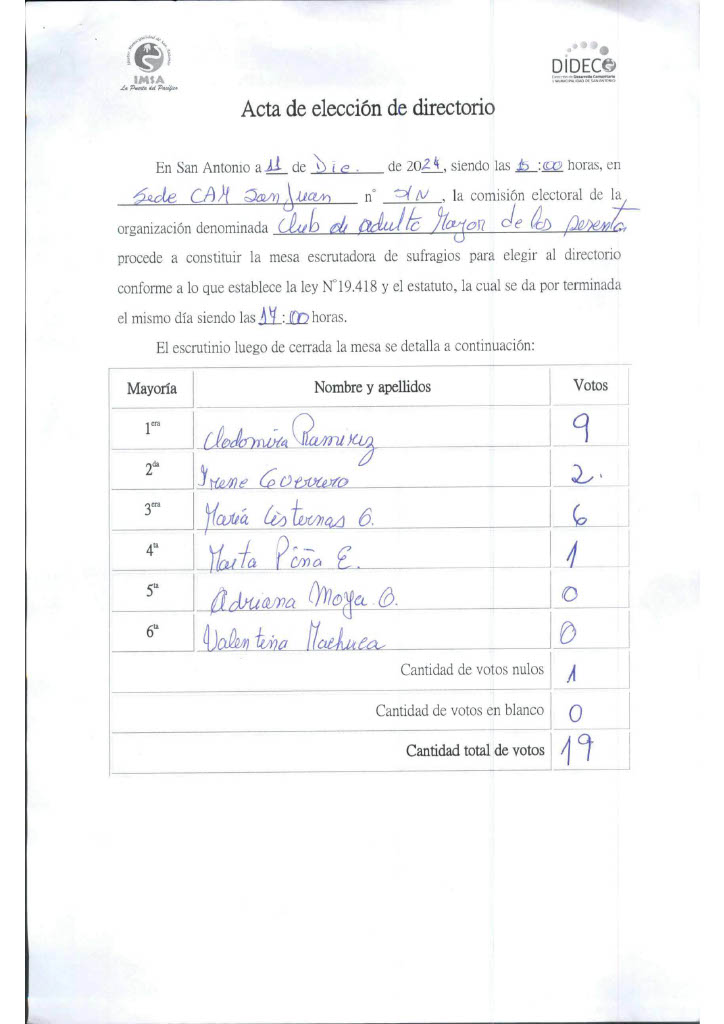 IMSA
La Puerta del Pacífico
DIDECO
Acta de elección de directorio
En San Antonio a 11 de Dic. de 2024, siendo las 15:00 horas, en
Sede CAM San Juan n° S/N, la comisión electoral de la
organización denominada Club de adulto Mayor de los
procede a constituir la mesa escrutadora de sufragios para elegir al directorio
conforme a lo que establece la ley N°19.418 y el estatuto, la cual se da por terminada
el mismo día siendo las 17:00 horas.
El escrutinio luego de cerrada la mesa se detalla a continuación:
Mayoría Nombre y apellidos Votos
1era Clodomira Ramirez 9
2da Irene Guerrero 2.
3era María Cisternas G. 6
4ta Marta Piña E. 1
5ta Adriana Moya O. 0
6ta Valentina Machuca 0
Cantidad de votos nulos 1
Cantidad de votos en blanco 0
Cantidad total de votos 19